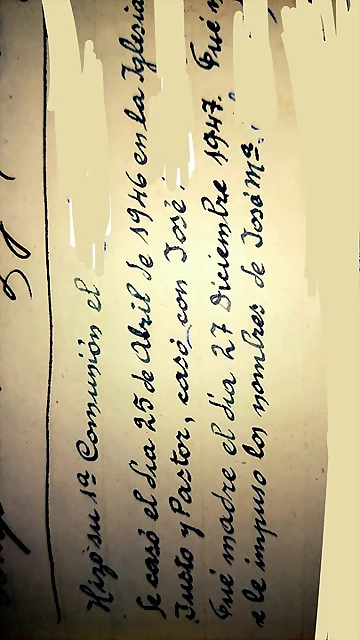 Hizo su 1ª Comunión el
Se casó el día 25 de Abril de 1946 en la Iglesia
Justo y Pastor, casó con José,
Fué madre el día 27 Diciembre 1947. Fué
se le impuso los nombres de José Mª.